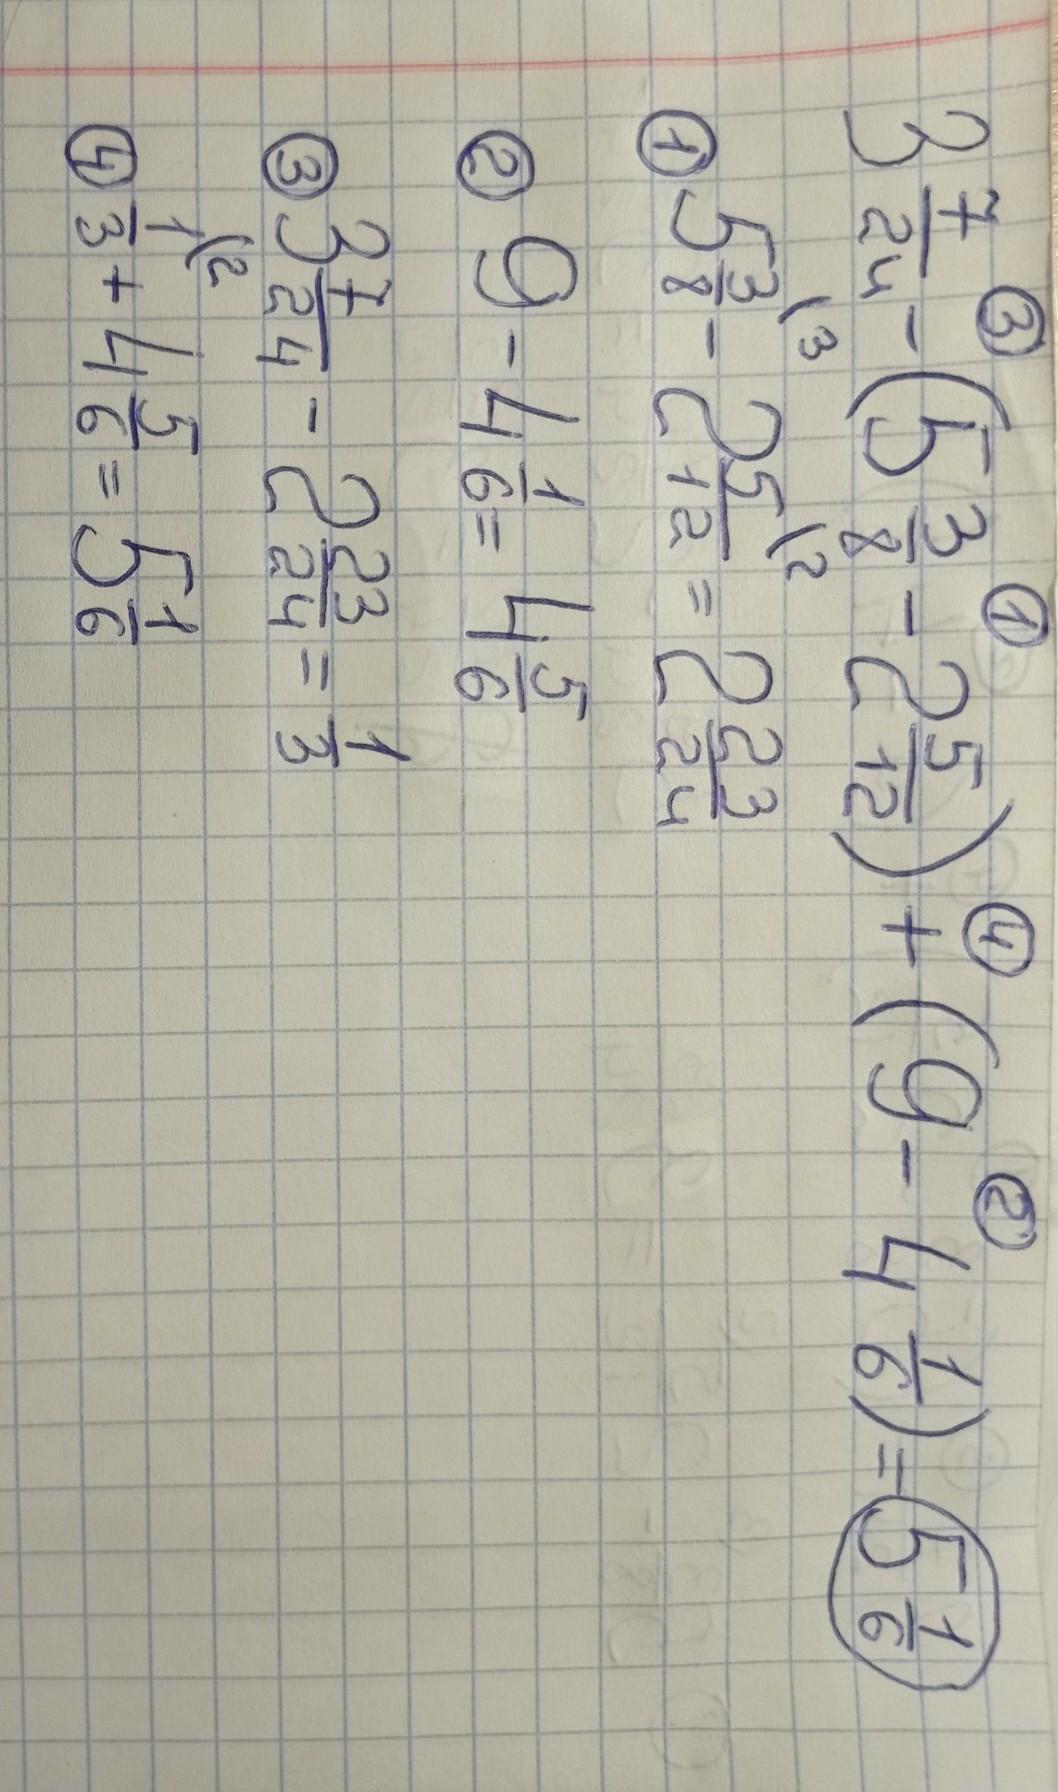 3 7/24 - (5 3/8 - 2 5/12) + (9 - 4 1/6) = 5 1/6
③ ① ④ ②
① 5 3/8 \3 - 2 5/12 \2 = 2 23/24
② 9 - 4 1/6 = 4 5/6
③ 3 7/24 - 2 23/24 = 1/3
④ 1/3 \2 + 4 5/6 = 5 1/6